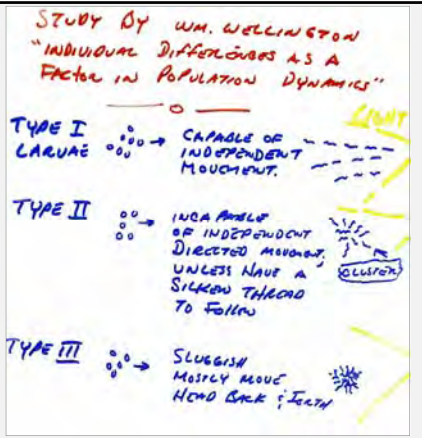 STUDY BY WM. WELLINGTON
"INDIVIDUAL DIFFERENCES AS A
FACTOR IN POPULATION DYNAMICS"
LIGHT
TYPE I
LARVAE
CAPABLE OF
INDEPENDENT
MOVEMENT.
TYPE II
INCAPABLE
OF INDEPENDENT
DIRECTED MOVEMENT,
UNLESS HAVE A
SILKEN THREAD
TO FOLLOW
CLUSTER
TYPE III
SLUGGISH
MOSTLY MOVE
HEAD BACK & FORTH